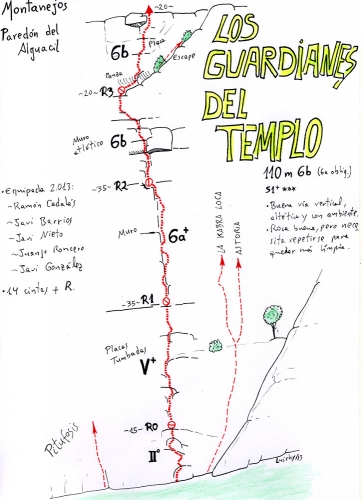 Montanejos
Paredón del
Alguacil
LOS
GUARDIANES
DEL
TEMPLO
110 m 6b (6a oblig.)
S1+ ***
• Buena vía vertical,
atlética y con ambiente.
• Roca buena, pero nece
sita repetirse para
quedar más limpia.
• Equipada 2.013:
~ Ramón Cadalás
~ Javi Barrios
~ Javi Nieto
~ Juanjo Roncero
~ Javi González
• 14 cintas + R.
~20~
6b
Placa
Escape
Panza
~20~ R3
Muro
atlético
6b
~35~ R2
Muro
6a+
LA KABRA LOCA
ASTORIA
~35~ R1
Placas
Tumbadas
V+
Pitufosis
~15~ R0
IIº